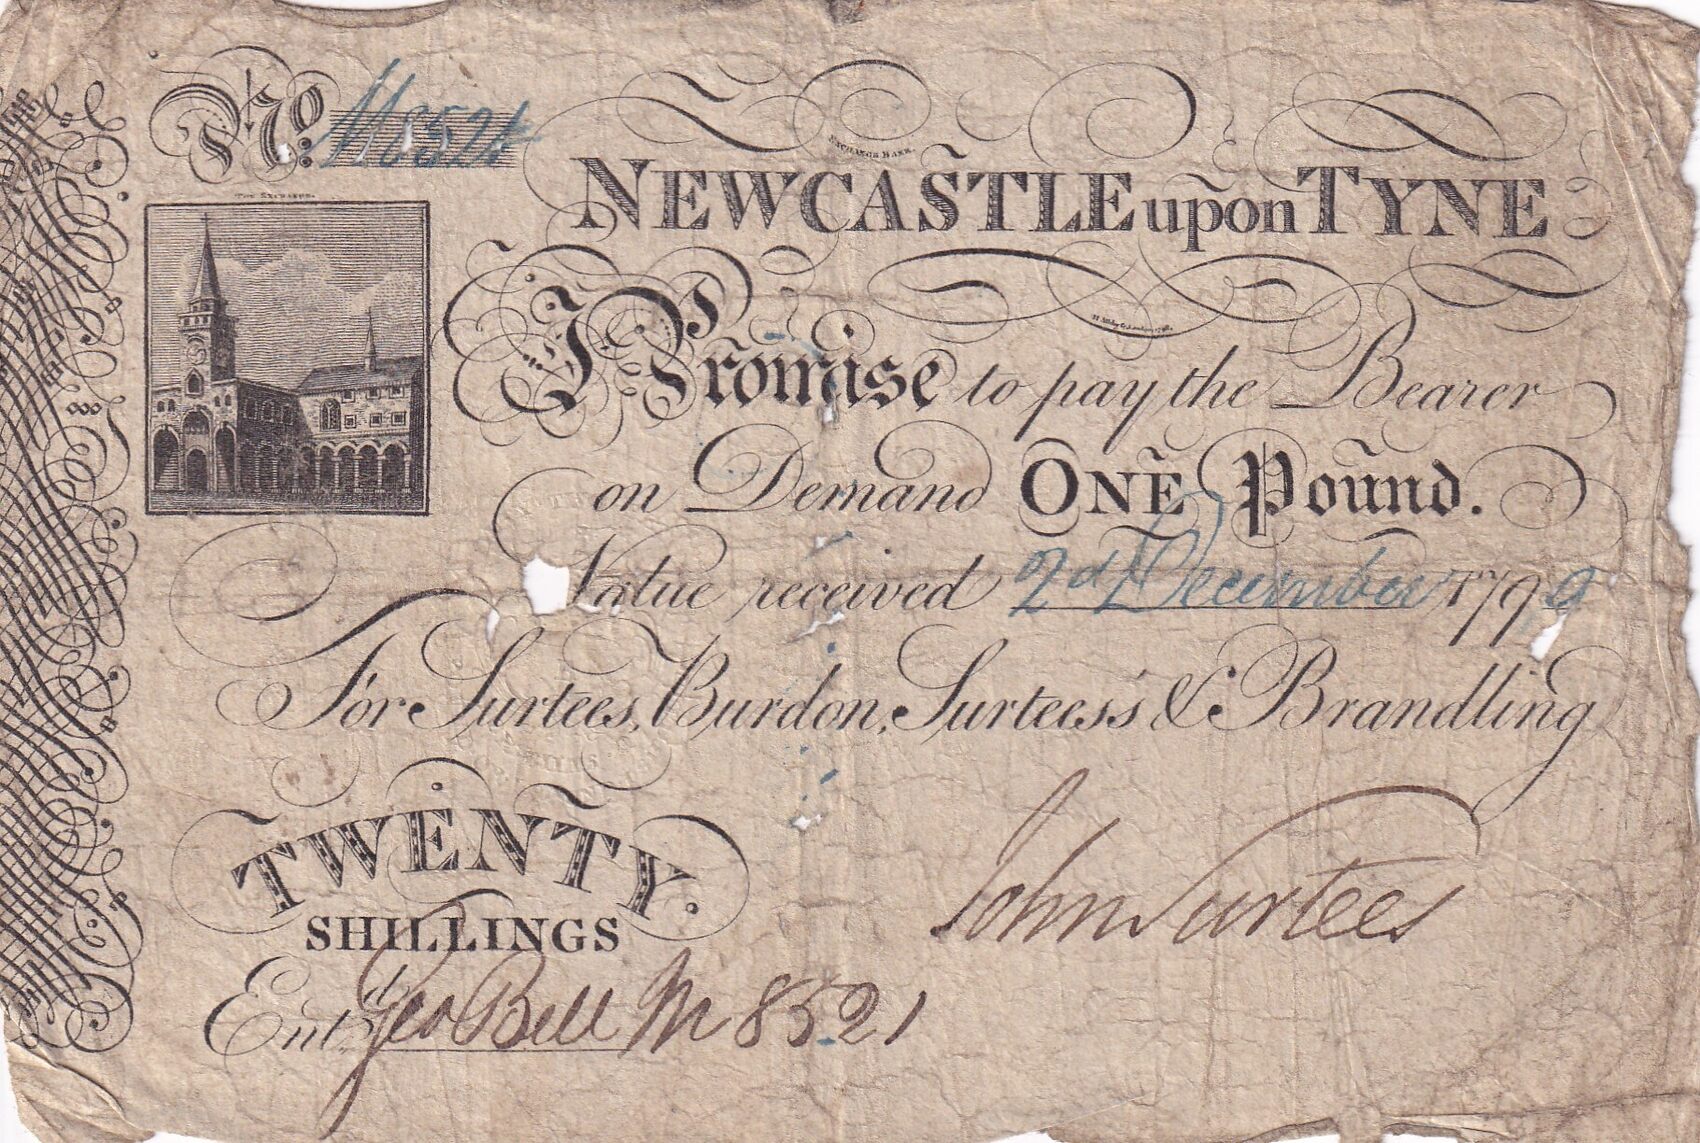 No. M8521
EXCHANGE BANK.
THE EXCHANGE.
NEWCASTLE upon TYNE
I Promise to pay the Bearer
on Demand ONE Pound.
Value received 2d December 1799
For Surtees, Burdon, Surtees's & Brandling
TWENTY
SHILLINGS
John Surtees
Entd. Geo Bell M 8521